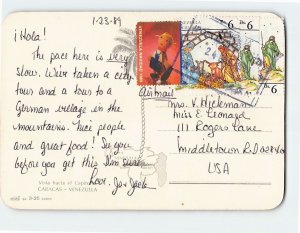 1-23-89
¡Hola!
The pace here is very
slow. We've taken a city
tour and a tour to a
German village in the
mountains. Nice people
and great food! See you
before you get this I'm sure.
Love, Joe
Airmail
Mrs. V. Hickman
Miss E. Leonard
111 Rogers Lane
Middletown R.I.
USA
Vista hacia el
CARACAS - VENEZUELA
6
6
6
9